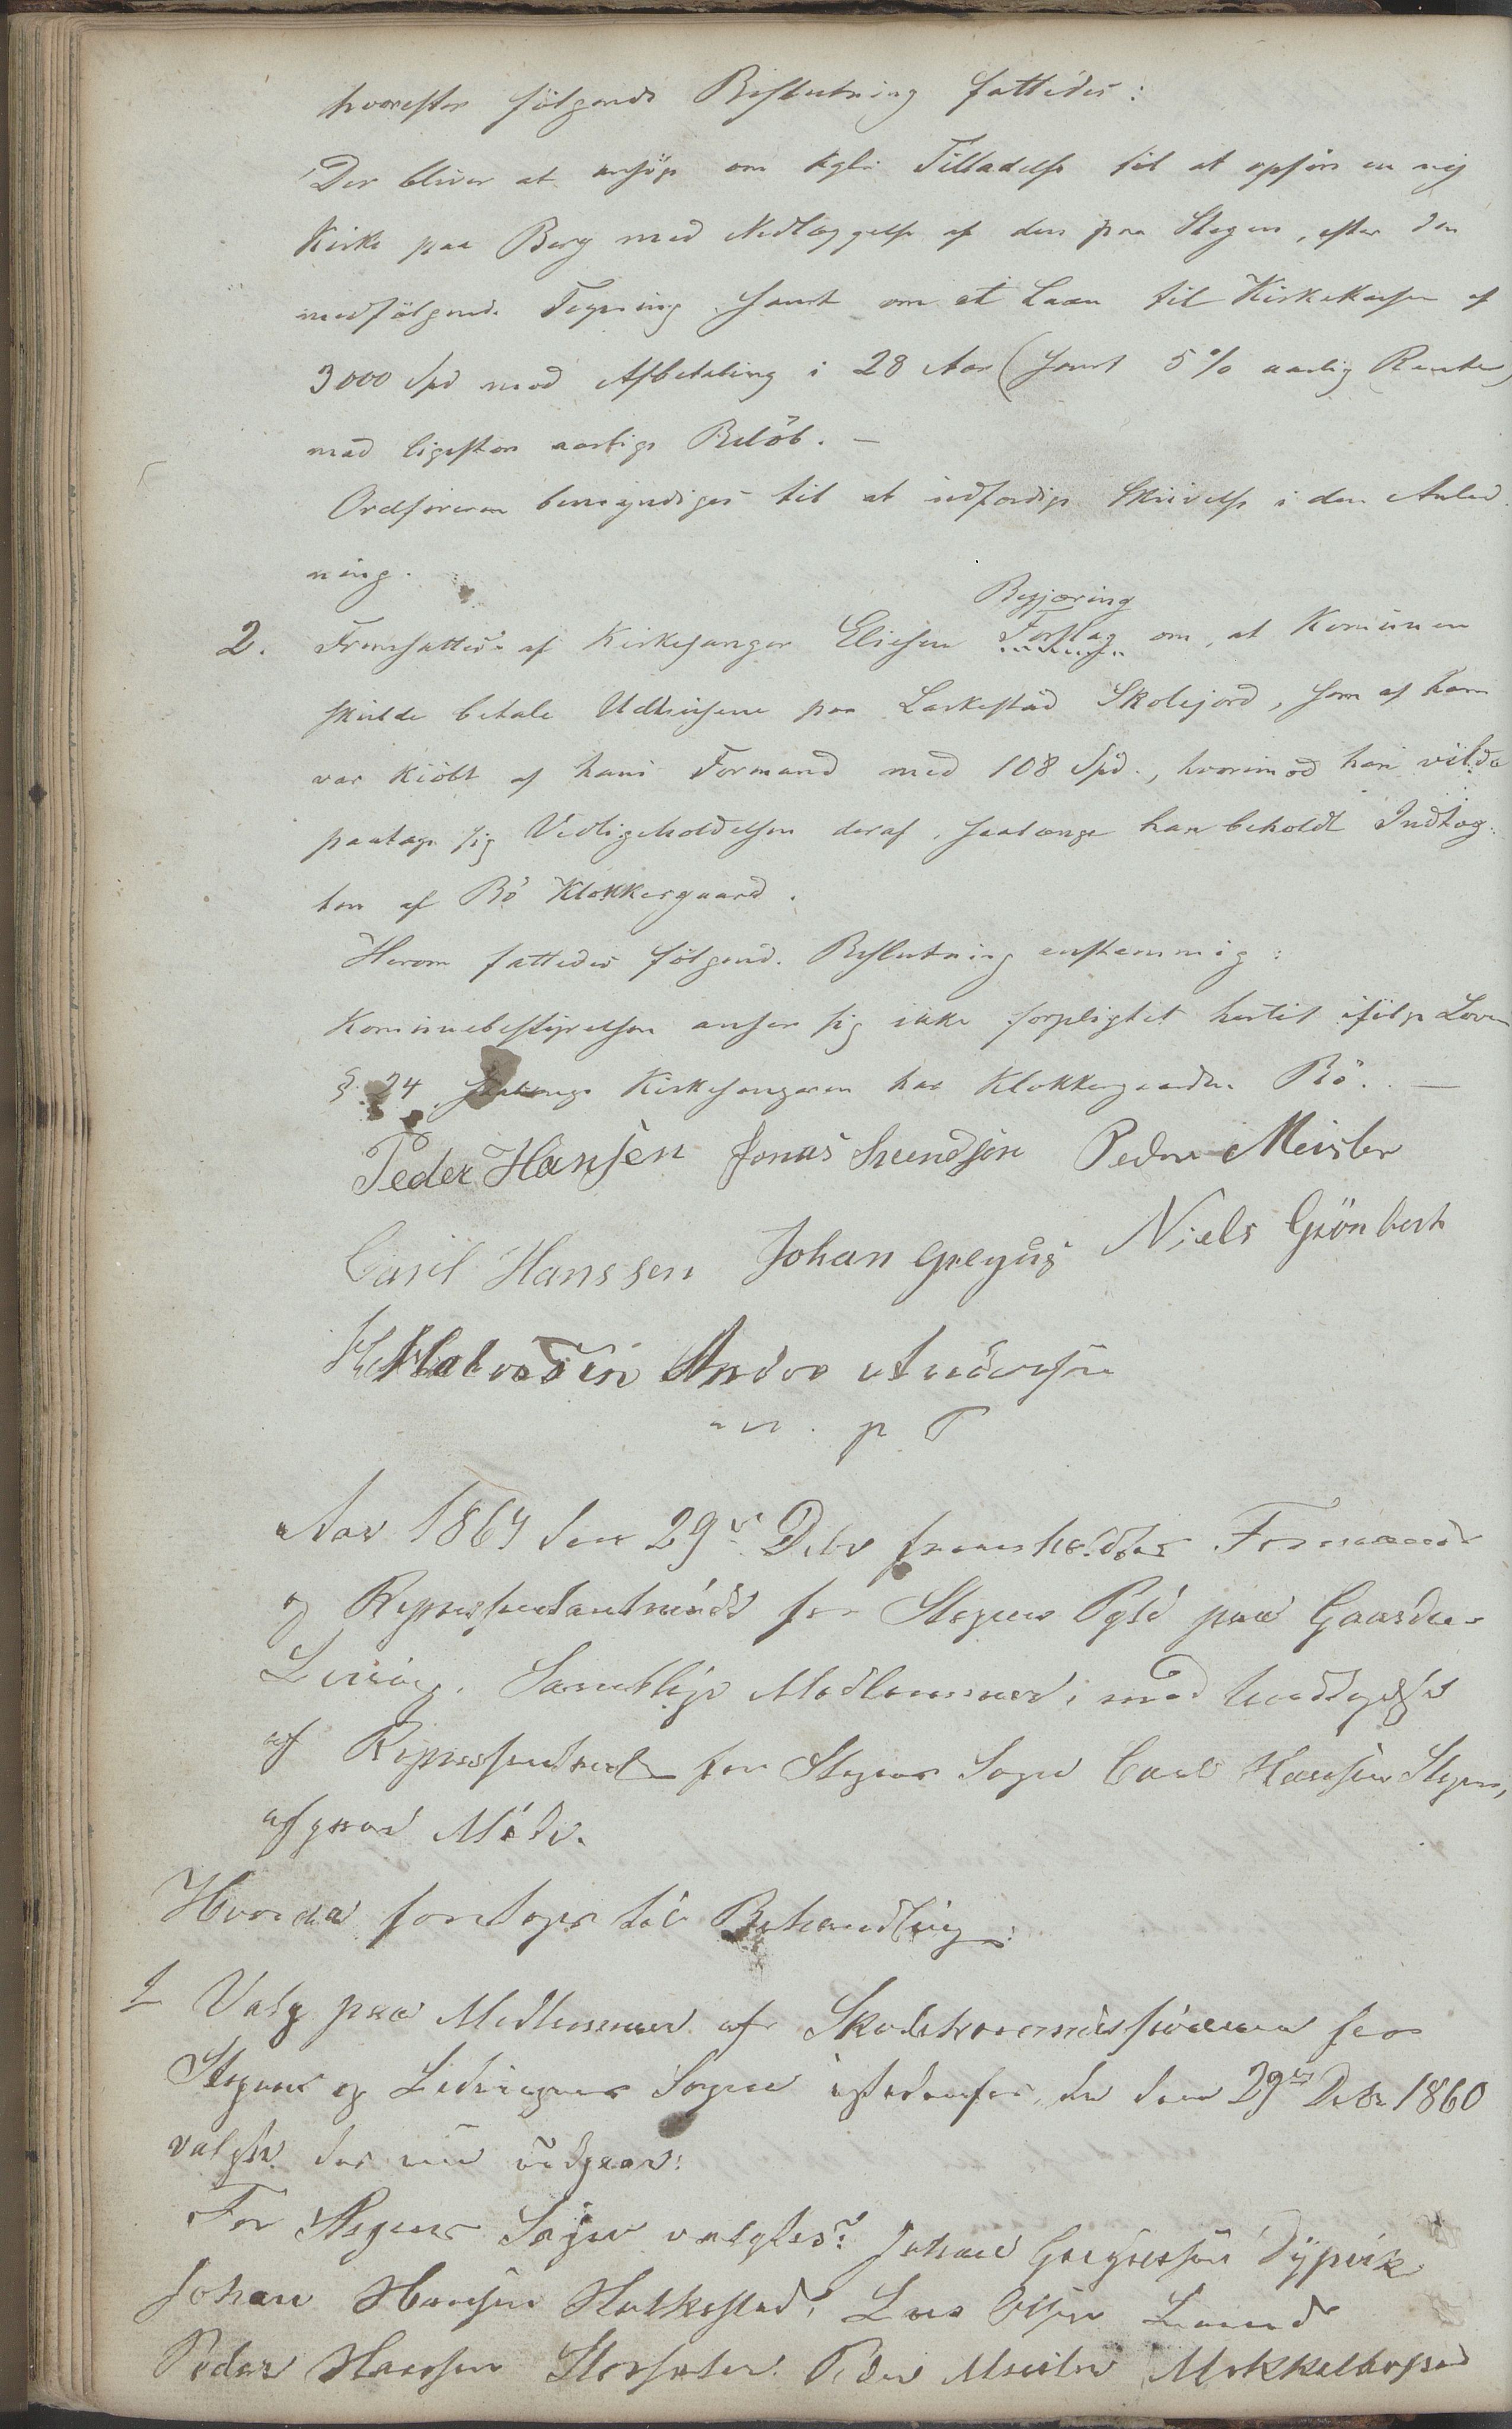 hvorefter følgende Beslutning fattedes:
Der bliver at ansøge om kgl. Tilladelse til at opføre en ny
Kirke paa Berg med Nedlæggelse af den paa Stegen, efter den
medfølgende Tegning samt om et Laan til Kirkekassen af
3000 Spd mod Afbetaling i 28 Aar (samt 5 % aarlig Rente)
med ligestore aarlige Beløb. —
Ordføreren bemyndiges til at udfærdige Skrivelse i den Anled
ning.
Begjæring
2. Fremsattes af Kirkesanger Eliesen Forslag om, at Komunen
skulde betale Udhusene paa Laskestad Skolejord, som af ham
var kiøbt af hans Formand med 108 Spd., hvorimod han vilde
paatage sig Vedligeholdelsen deraf, saalænge han beholdt Indtæg-
ten af Bö Klokkergaard.
Herom fattedes følgende Beslutning enstemmig:
Kommunebestyrelsen anser sig ikke forpligtet hertil ifølge Loven
§. 24 saalænge Kirkesangeren har Klokkergaarden Bö. —
Peder Hansen Jonas Svendsen Peder Meisler
Caril Hanssen Johan Gregus Niels Grönbech
Andor Andersen
m. p. P
Aar 1864 den 29de Debr fremholdtes Formands
og Representantmöde for Stegens Pgld paa Gaarden
Leining. Samtlige Medlemmer, med Undtagelse
af Representant for Stegens Sogn Carl Hansen Stegen,
afgav Möde.
Hvorda foretoges til Behandling:
1 Valg paa Medlemmer af Skolekommissionen for
Stegens og Ledingens Sogne istedenfor de den 29de Debr 1860
valgte der nu udgaar:
For Stegens Sogn valgtes: Johan Gregusen Dypvik
Johan Hansen Holkestad, Lars Olsen Lund
Peder Hansen Storsæter Peder Meisler Makkelbogsed